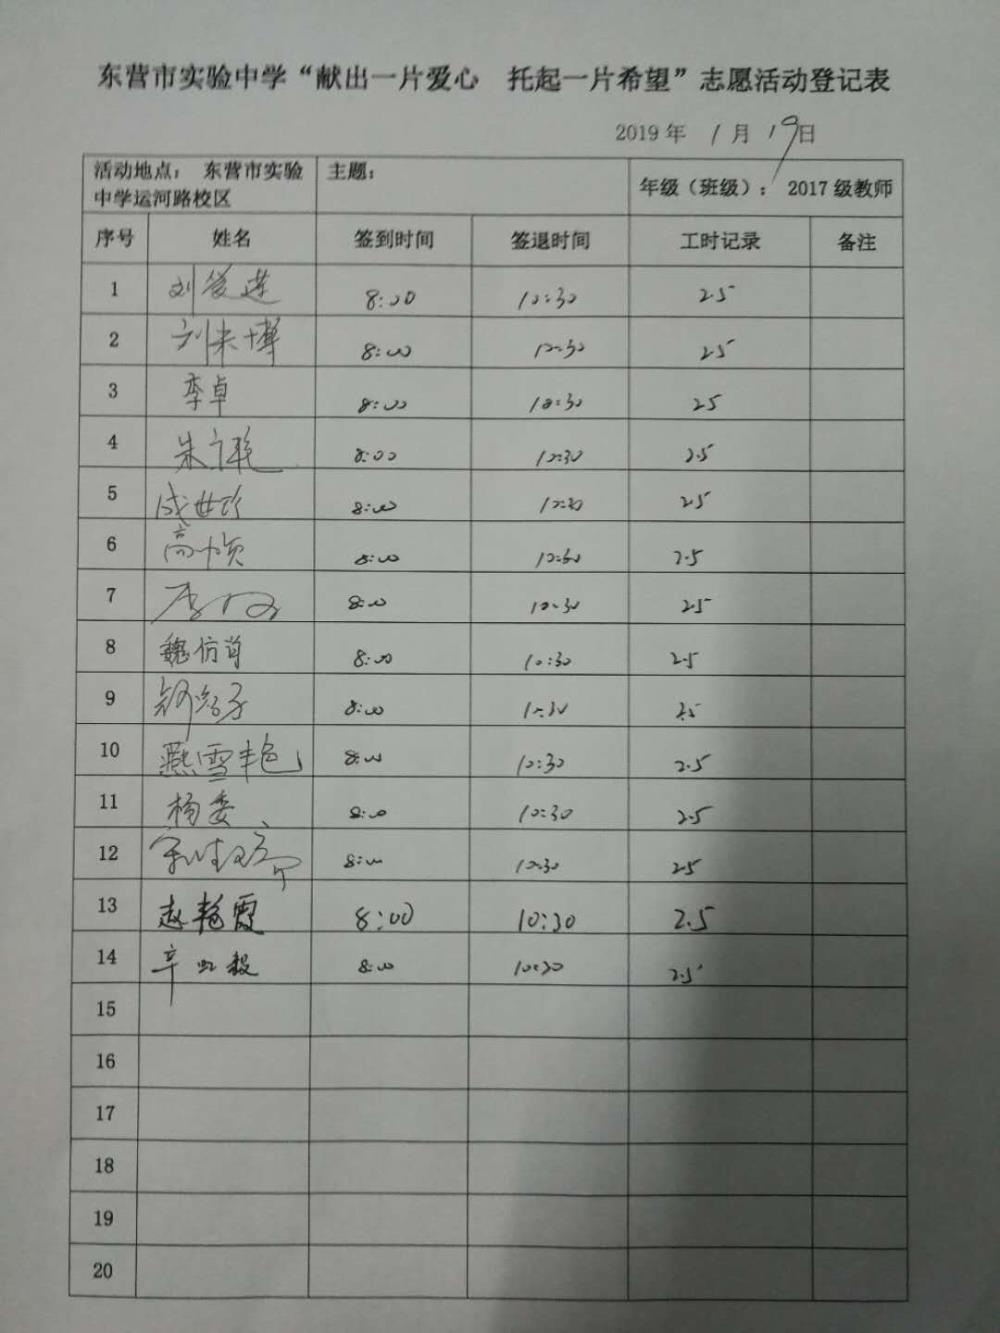 东营市实验中学“献出一片爱心 托起一片希望”志愿活动登记表
2019年 1月 19日
活动地点： 东营市实验 主题： 年级（班级）： 2017级教师
中学运河路校区
序号 姓名 签到时间 签退时间 工时记录 备注
1 刘爱莲 8:00 10:30 2.5
2 8:00 10:30 2.5
3 李卓 8:00 10:30 2.5
4 朱 8:00 10:30 2.5
5 成世珍 8:00 10:30 2.5
6 高 8:00 10:30 2.5
7 8:00 10:30 2.5
8 魏仿 8:00 10:30 2.5
9 8:00 10:30 2.5
10 燕雪艳 8:00 10:30 2.5
11 杨委 8:00 10:30 2.5
12 8:00 10:30 2.5
13 赵艳霞 8:00 10:30 2.5
14 辛 8:00 10:30 2.5
15
16
17
18
19
20